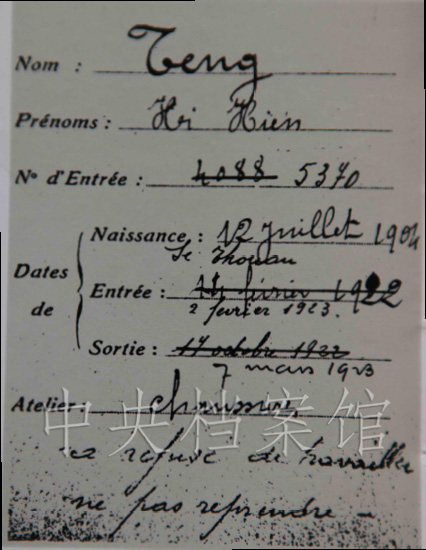 Nom : Teng
Prénoms : Hi Hien
N° d'Entrée : 4088 5370
Dates de
Naissance : 12 Juillet 1904
Se Thouan
Entrée : 14 février 1922
2 février 1923.
Sortie : 17 octobre 1922
7 mars 1923
Atelier : chaussures
中央档案馆
a refusé de travailler
ne pas reprendre –